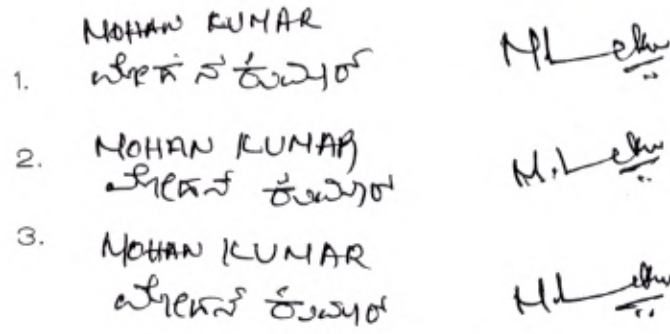 MOHAN KUMAR
1. ಮೋಹನ ಕುಮಾರ್
2. MOHAN KUMAR
ಮೋಹನ ಕುಮಾರ್
3. MOHAN KUMAR
ಮೋಹನ ಕುಮಾರ್